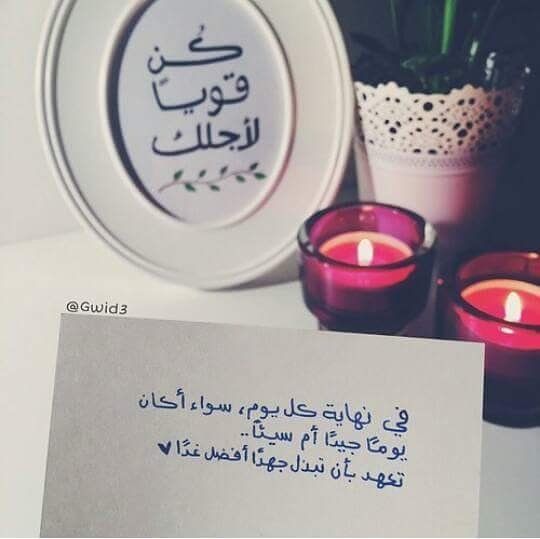 كُن
قويًا
لأجلك
@Gwid3
في نهاية كل يوم، سواء أكان
يومًا جيدًا أم سيئًا..
تعهد بأن تبذل جهدًا أفضل غدًا ♥